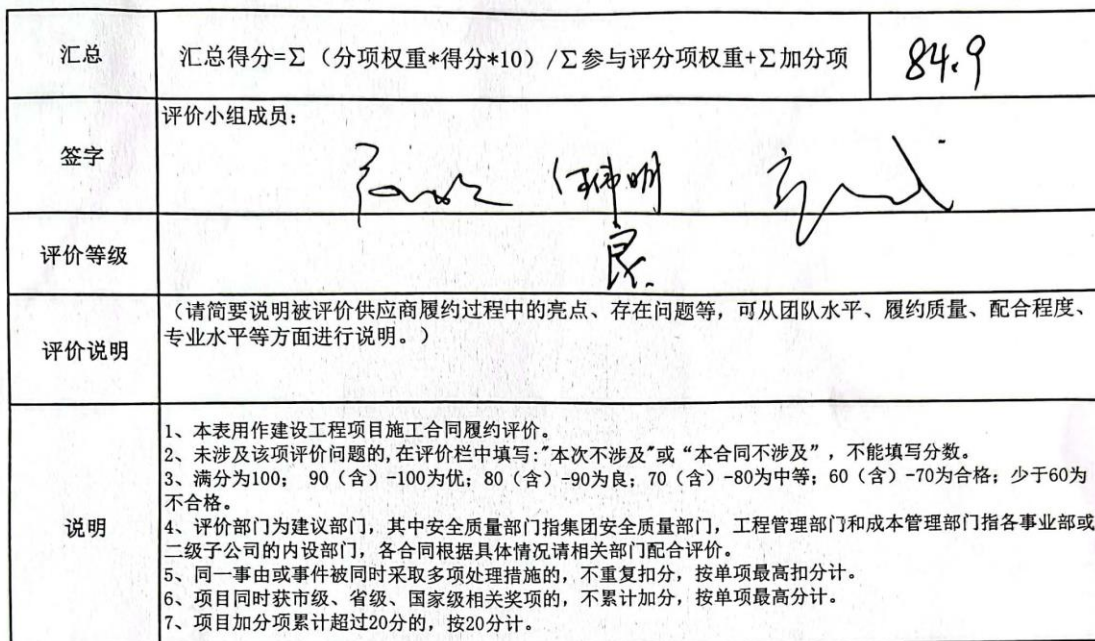 汇总
汇总得分=Σ（分项权重*得分*10）/Σ参与评分项权重+Σ加分项
84.9
签字
评价小组成员：
评价等级
良.
评价说明
（请简要说明被评价供应商履约过程中的亮点、存在问题等，可从团队水平、履约质量、配合程度、
专业水平等方面进行说明。）
说明
1、本表用作建设工程项目施工合同履约评价。
2、未涉及该项评价问题的,在评价栏中填写:"本次不涉及"或“本合同不涉及”，不能填写分数。
3、满分为100； 90（含）-100为优；80（含）-90为良；70（含）-80为中等；60（含）-70为合格；少于60为
不合格。
4、评价部门为建议部门，其中安全质量部门指集团安全质量部门，工程管理部门和成本管理部门指各事业部或
二级子公司的内设部门，各合同根据具体情况请相关部门配合评价。
5、同一事由或事件被同时采取多项处理措施的，不重复扣分，按单项最高扣分计。
6、项目同时获市级、省级、国家级相关奖项的，不累计加分，按单项最高分计。
7、项目加分项累计超过20分的，按20分计。